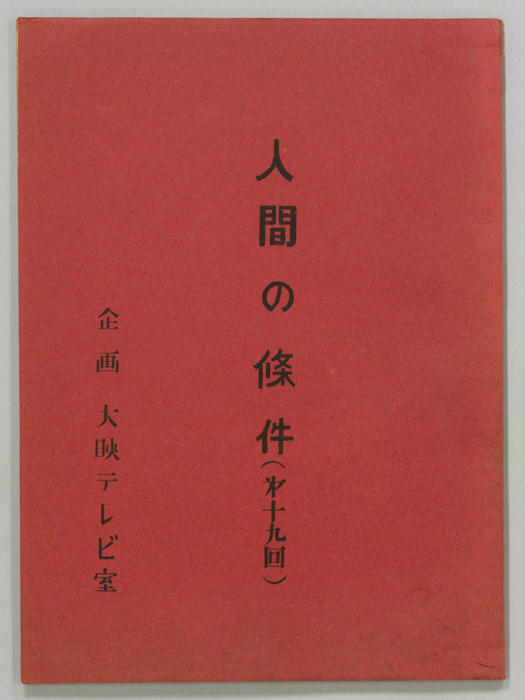 人間の條件(㐧十九回)
企画 大映テレビ室